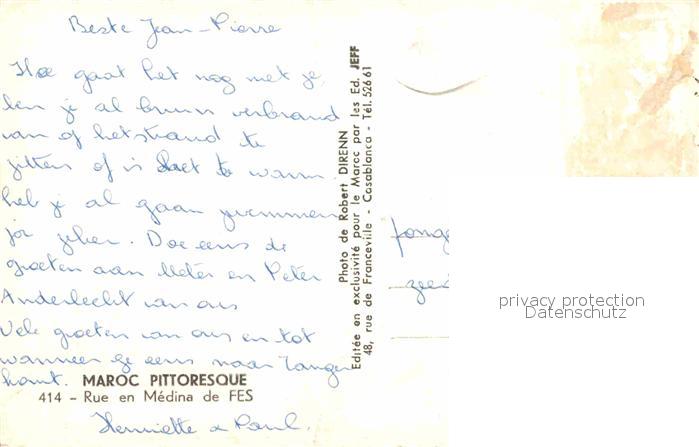 Beste Jean-Pierre
Hoe gaat het nog met je
ben je al bruin verbrand
van of het strand te
zitten of is daet te warm.
heb je al gaan zwemmen
jor zeker. Doe eens de
groeten aan Meter en Peter
Anderlecht van ons
Vele groeten van ons en tot
wanneer ge eens naar Tanger
komt.
MAROC PITTORESQUE
414 - Rue en Médina de FES
Henriette & Paul.
Photo de Robert DIRENN
Editée en exclusivité pour le Maroc par les Ed. JEFF
48, rue de Franceville - Casablanca - Tél. 526 61
privacy protection
Datenschutz